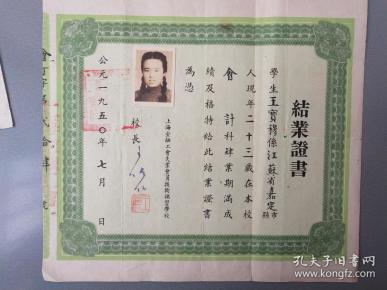 結業證書
學生王寶穆係江蘇省嘉定市縣
人現年二十三歲在本校
會計科肄業期滿成
績及格特給此結業證書
為憑
上海金融工會失業會員救濟補習學校
校長
公元一九五〇年七月 日
孔夫子旧书网